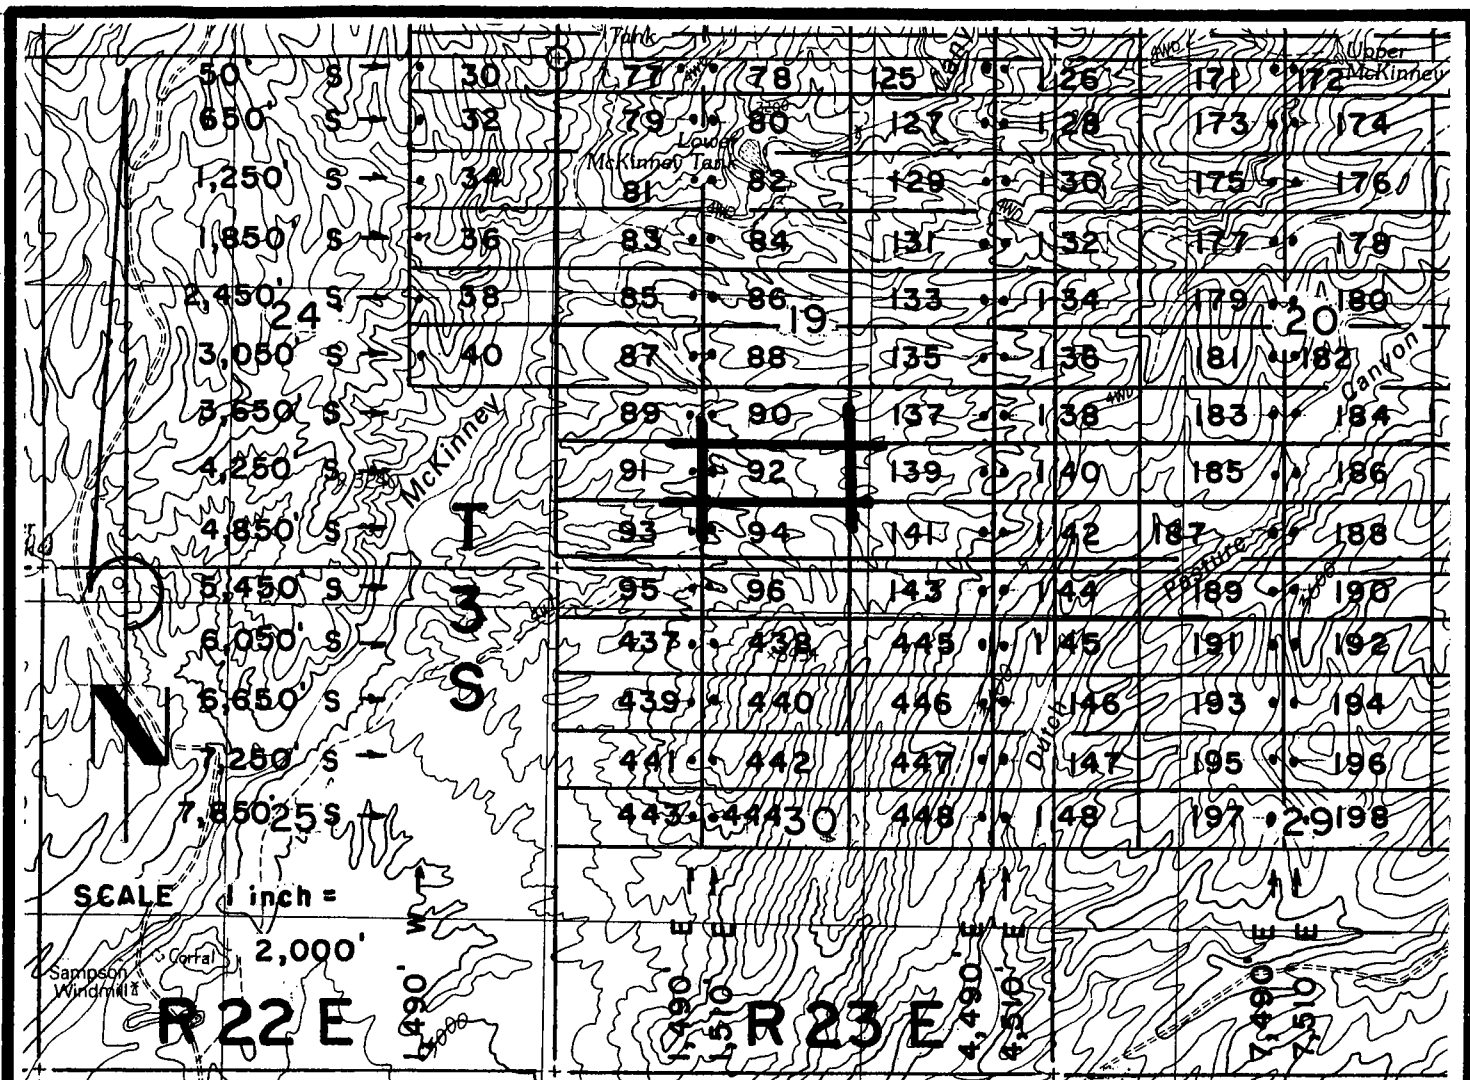 Tank
Cany
4WD
Upper
McKinney
50' S 30 77 78 125 126 171 172
4WD
3500
650' S 32 79 80 127 128 173 174
Lower
McKinney Tank
1,250' S 34 81 82 129 130 175 176
4WD 4WD
1,850' S 36 83 84 131 132 177 178
2,450' S 38 85 86 133 134 179 180
24 19 20
3,050' S 40 87 88 135 136 181 182
Canyon
4WD
3,650' S 89 90 137 138 183 184
McKinney
4,250' S 91 92 139 140 185 186
T
4,850' S 93 94 141 142 187 188
Pasture
5,450' S 95 96 143 144 189 190
3
4WD
6,050' S 437 438 445 145 191 192
S
6,650' S 439 440 446 146 193 194
N
Dutch
7,250' S 441 442 447 147 195 196
7,850' S 443 444 448 148 197 198
25 30 29
SCALE 1 inch =
2,000'
Corral
Sampson
Windmill
R 22 E
R 23 E
1,490' W
1,490' E
1,510' E
4,490' E
4,510' E
7,490' E
7,510' E
4000